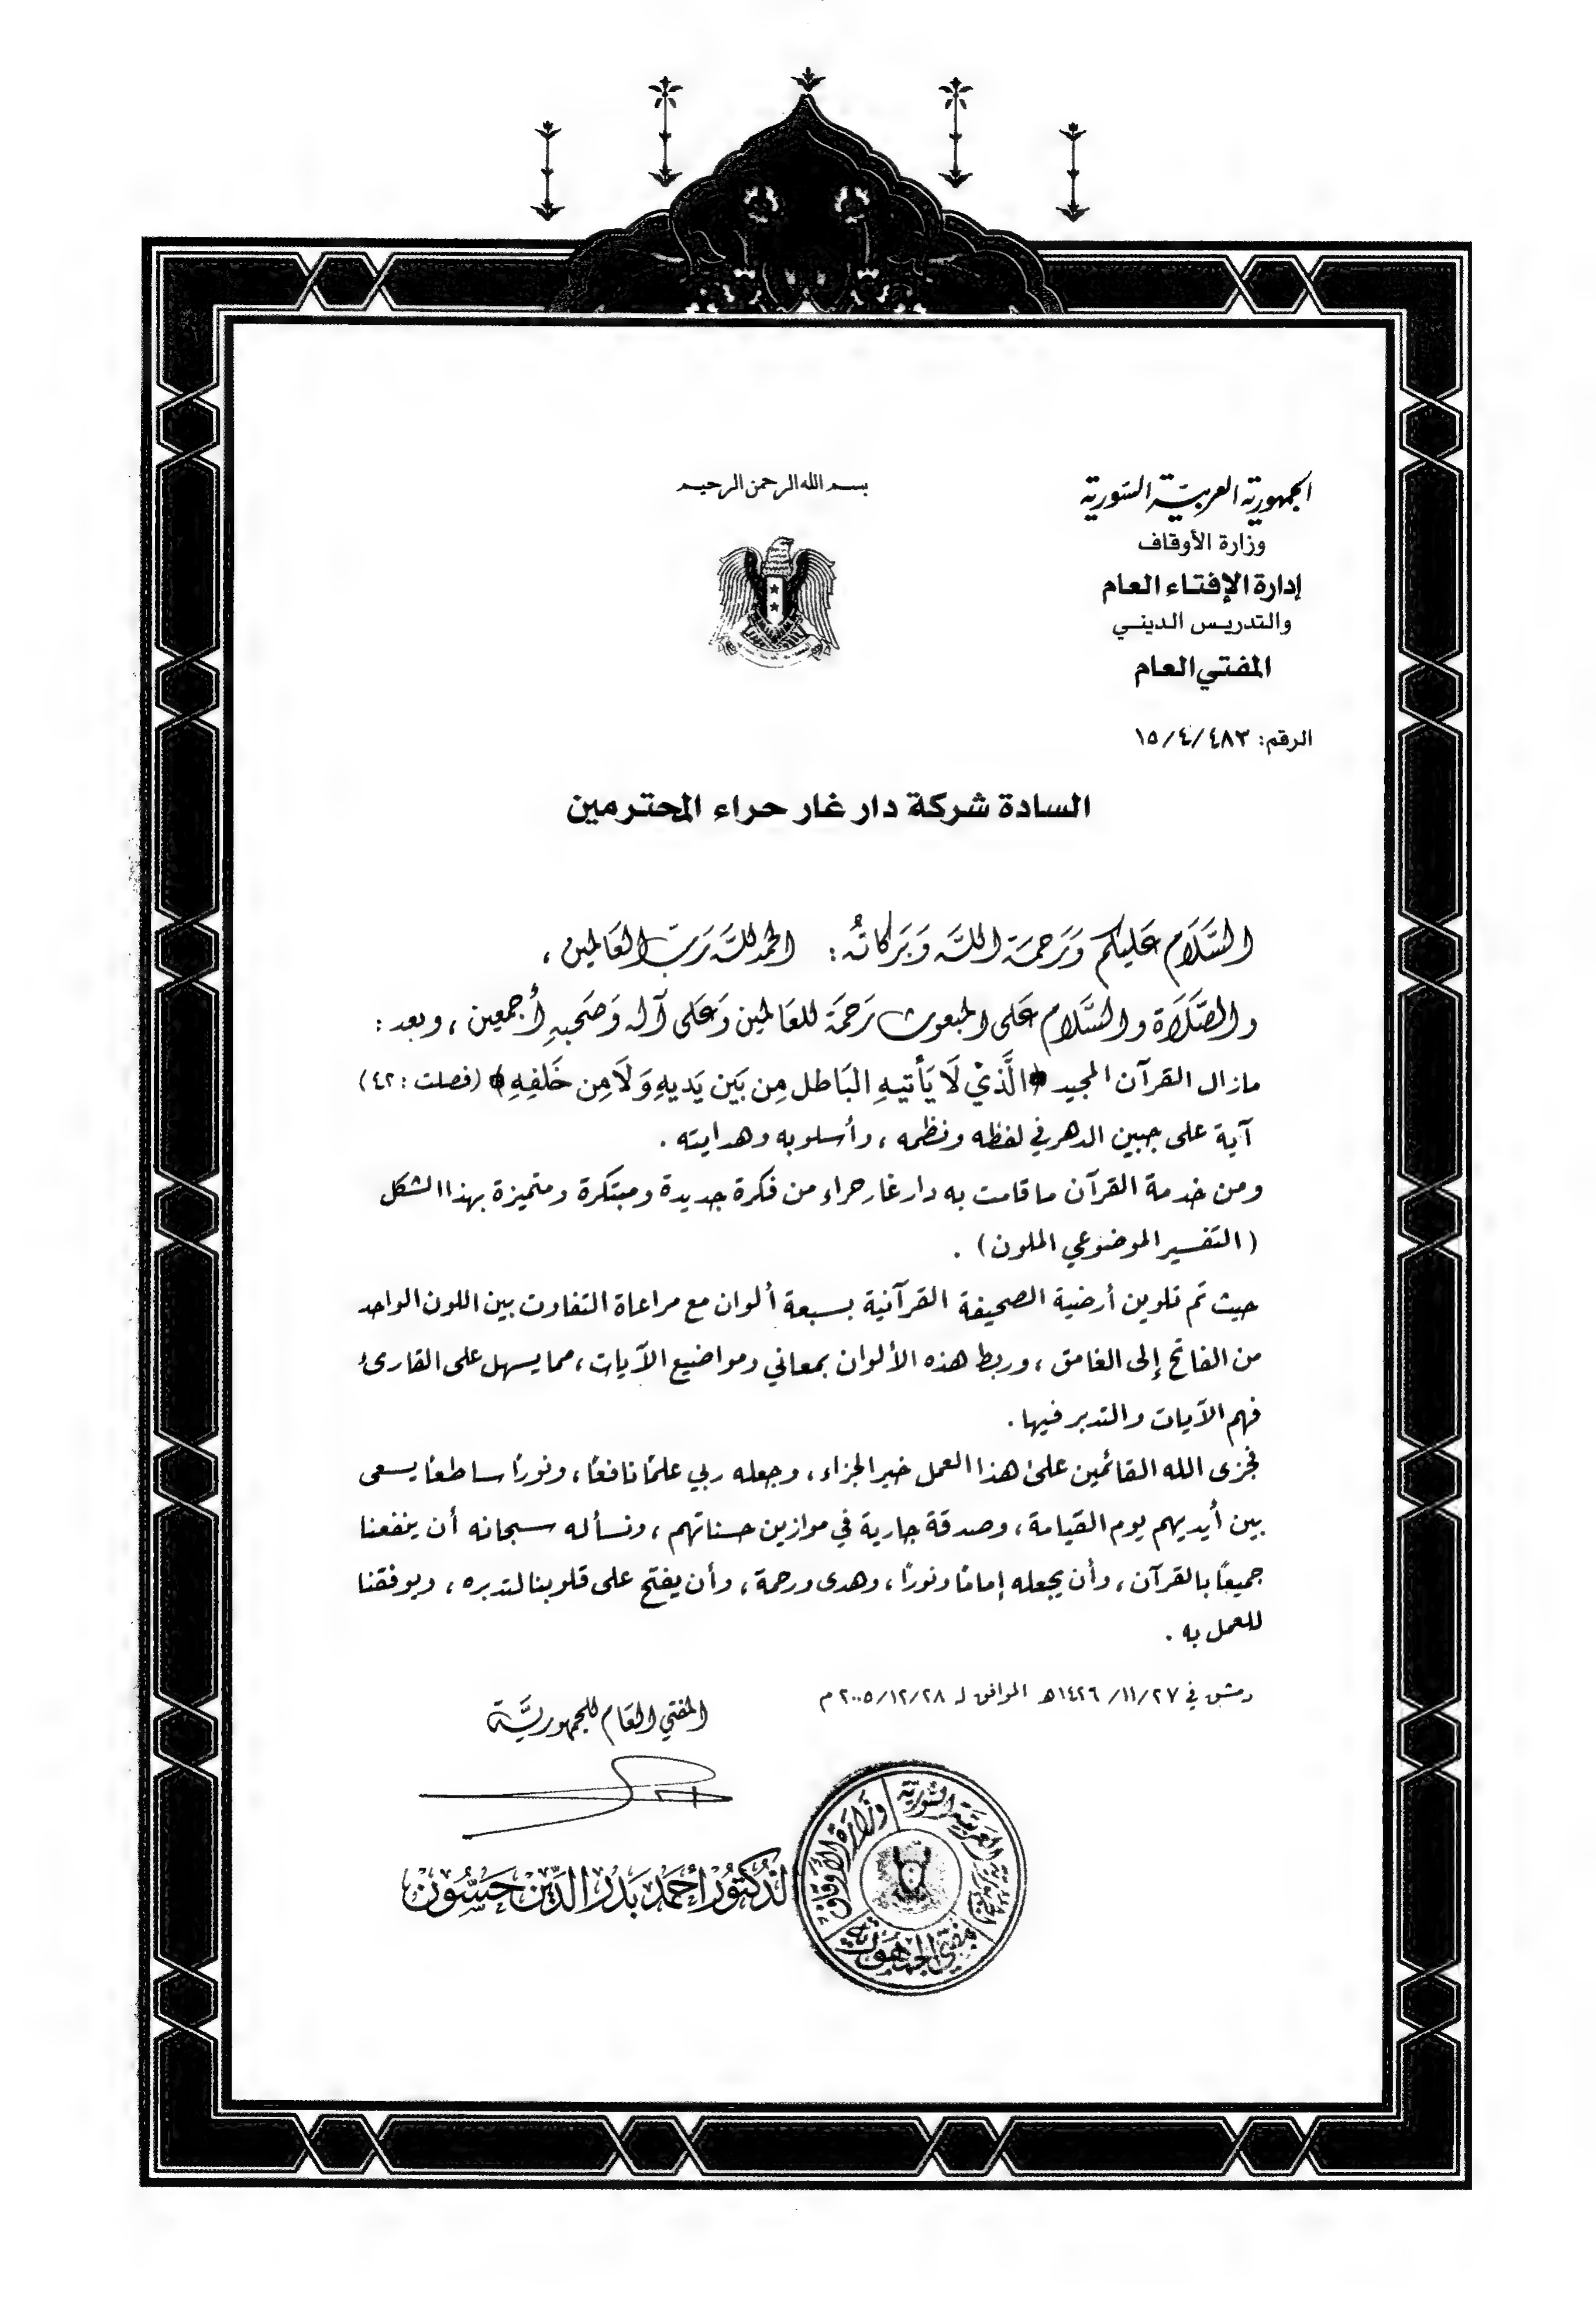 بسم الله الرحمن الرحيم
الجمهورية العربيّة السّورية
وزارة الأوقاف
إدارة الإفتاء العام
والتدريس الديني
المفتي العام
الرقم: ٤٨٣/ ٤/ ١٥
السادة شركة دار غار حراء المحترمين
السَّلَام عَليكم وَرَحمَة اللَّه وَبَركاتُه : الحمدللَّه رَبّ العَالمين ،
والصَّلَاة والسَّلام عَلى المبعوث رَحمَة للعَالمين وَعَلى آله وَصَحبِهِ أجمعين ، وبعد :
مازال القرآن المجيد ﴿الَّذيْ لَا يَأتيهِ البَاطل مِن بَين يَديهِ وَلَا مِن خَلفِهِ﴾ (فصلت : ٤٢)
آية على جبين الدهر في لفظه ونظمه ، وأسلوبه وهدايته .
ومن خدمة القرآن ما قامت به دار غار حراء من فكرة جديدة ومبتكرة ومتميزة بهذا الشكل
( التفسير الموضوعي الملون ) .
حيث تم تلوين أرضية الصحيفة القرآنية بسبعة ألوان مع مراعاة التفاوت بين اللون الواحد
من الفاتح إلى الغامق ، وربط هذه الألوان بمعاني ومواضيع الآيات ، مما يسهل على القارئ
فهم الآيات والتدبر فيها .
فجزى الله القائمين على هذا العمل خير الجزاء ، وجعله ربي علمًا نافعًا ، ونورًا ساطعًا يسعى
بين أيديهم يوم القيامة ، وصدقة جارية في موازين حسناتهم ، ونسأله سبحانه أن ينفعنا
جميعًا بالقرآن ، وأن يجعله إمامًا ونورًا ، وهدى ورحمة ، وأن يفتح على قلوبنا لتدبره ، ويوفقنا
للعمل به .
دمشق في ٢٧/ ١١/ ١٤٢٦هـ الموافق لـ ٢٨/ ١٢/ ٢٠٠٥م
المفتي العَام للجمهوريَّة
الدكتور أحمَد بَدْر الدِّين حَسُّون
الجمهورية العربية السورية
وزارة الأوقاف
مفتي الجمهورية